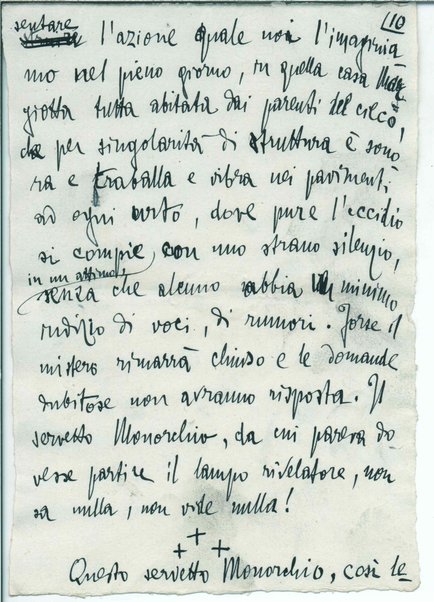 10
sentare
l'azione quale noi l'imagina
mo nel pieno giorno, in quella casa Man
giotta tutta abitata dai parenti del cieco,
che per singolarità di struttura è sono
ra e traballa e vibra nei pavimenti
ad ogni urto, dove pure l'eccidio
si compie, con uno strano silenzio,
in un attimo,
senza che alcuno abbia il minimo
indizio di voci, di rumori. Forse il
mistero rimarrà chiuso e le domande
dubitose non avranno risposta. Il
servetto Monorchio, da cui pareva do
vesse partire il lampo rivelatore, non
sa nulla, non vide nulla!
+ + +
Questo servetto Monorchio, così le